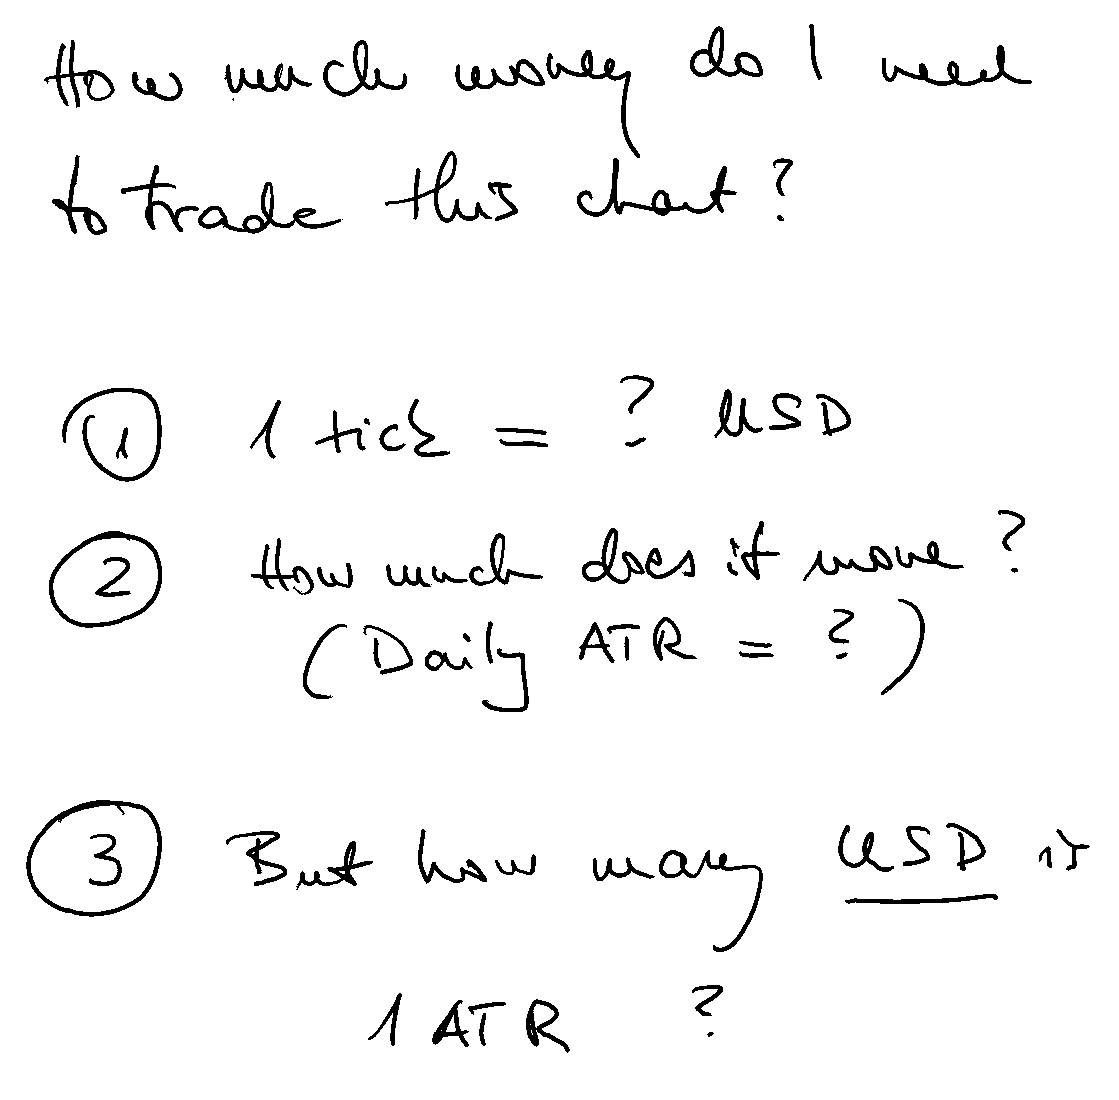 How much money do I need
to trade this chart?
1 1 tick = ? USD
2 How much does it move?
(Daily ATR = ?)
3 But how many USD is
1 ATR ?